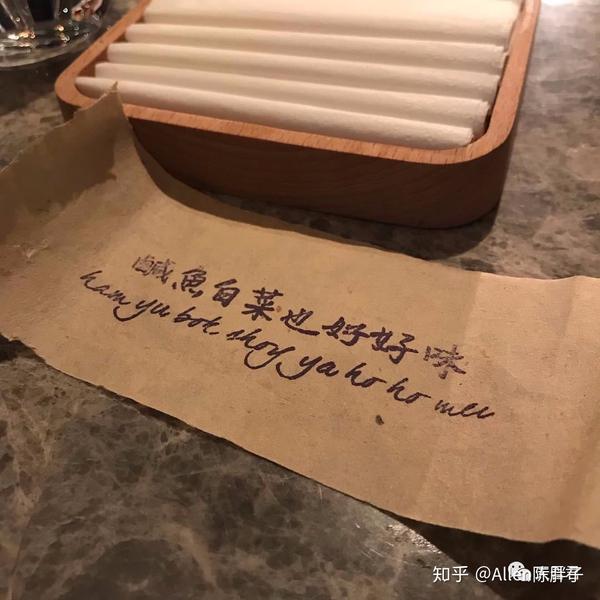 鹹魚白菜也好好味
ham yu bok shoy ya ho ho mei
知乎 @Allen陈胖子